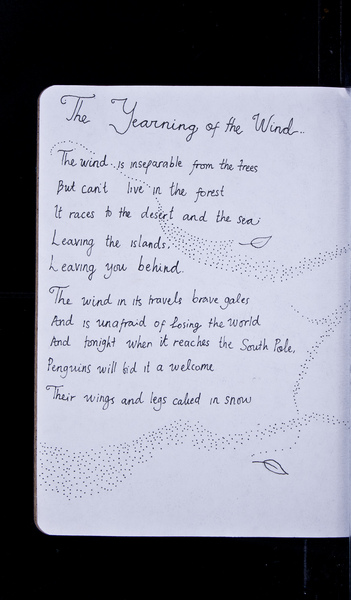 The Yearning of the Wind..
The wind.. is inseparable from the trees
But can't live in the forest
It races to the desert and the sea;
Leaving the islands,
Leaving you behind.
The wind in its travels brave gales
And is unafraid of losing the world
And tonight when it reaches the South Pole,
Penguins will bid it a welcome
Their wings and legs caked in snow